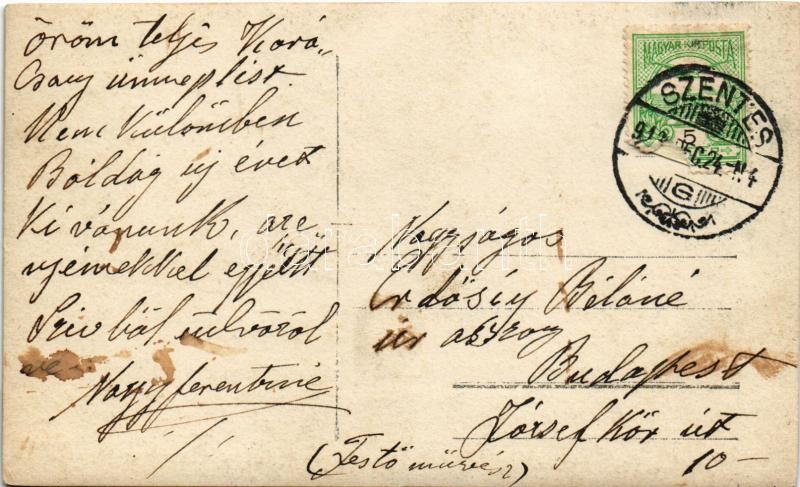 öröm teljes Kará-
csony ünneplist
Nem Külömben
Bóldóg új évet
Kívánunk, az
együtt
Szivből üdvözöl
Nagyferentzné
MAGYAR KIR. POSTA
SZENTES
DEC. 24. N4
G
Nagyságos
Erdősiy Béláné
úr asszony
Budapest
József Kör út
10 -
(Festőművész)
darabanth